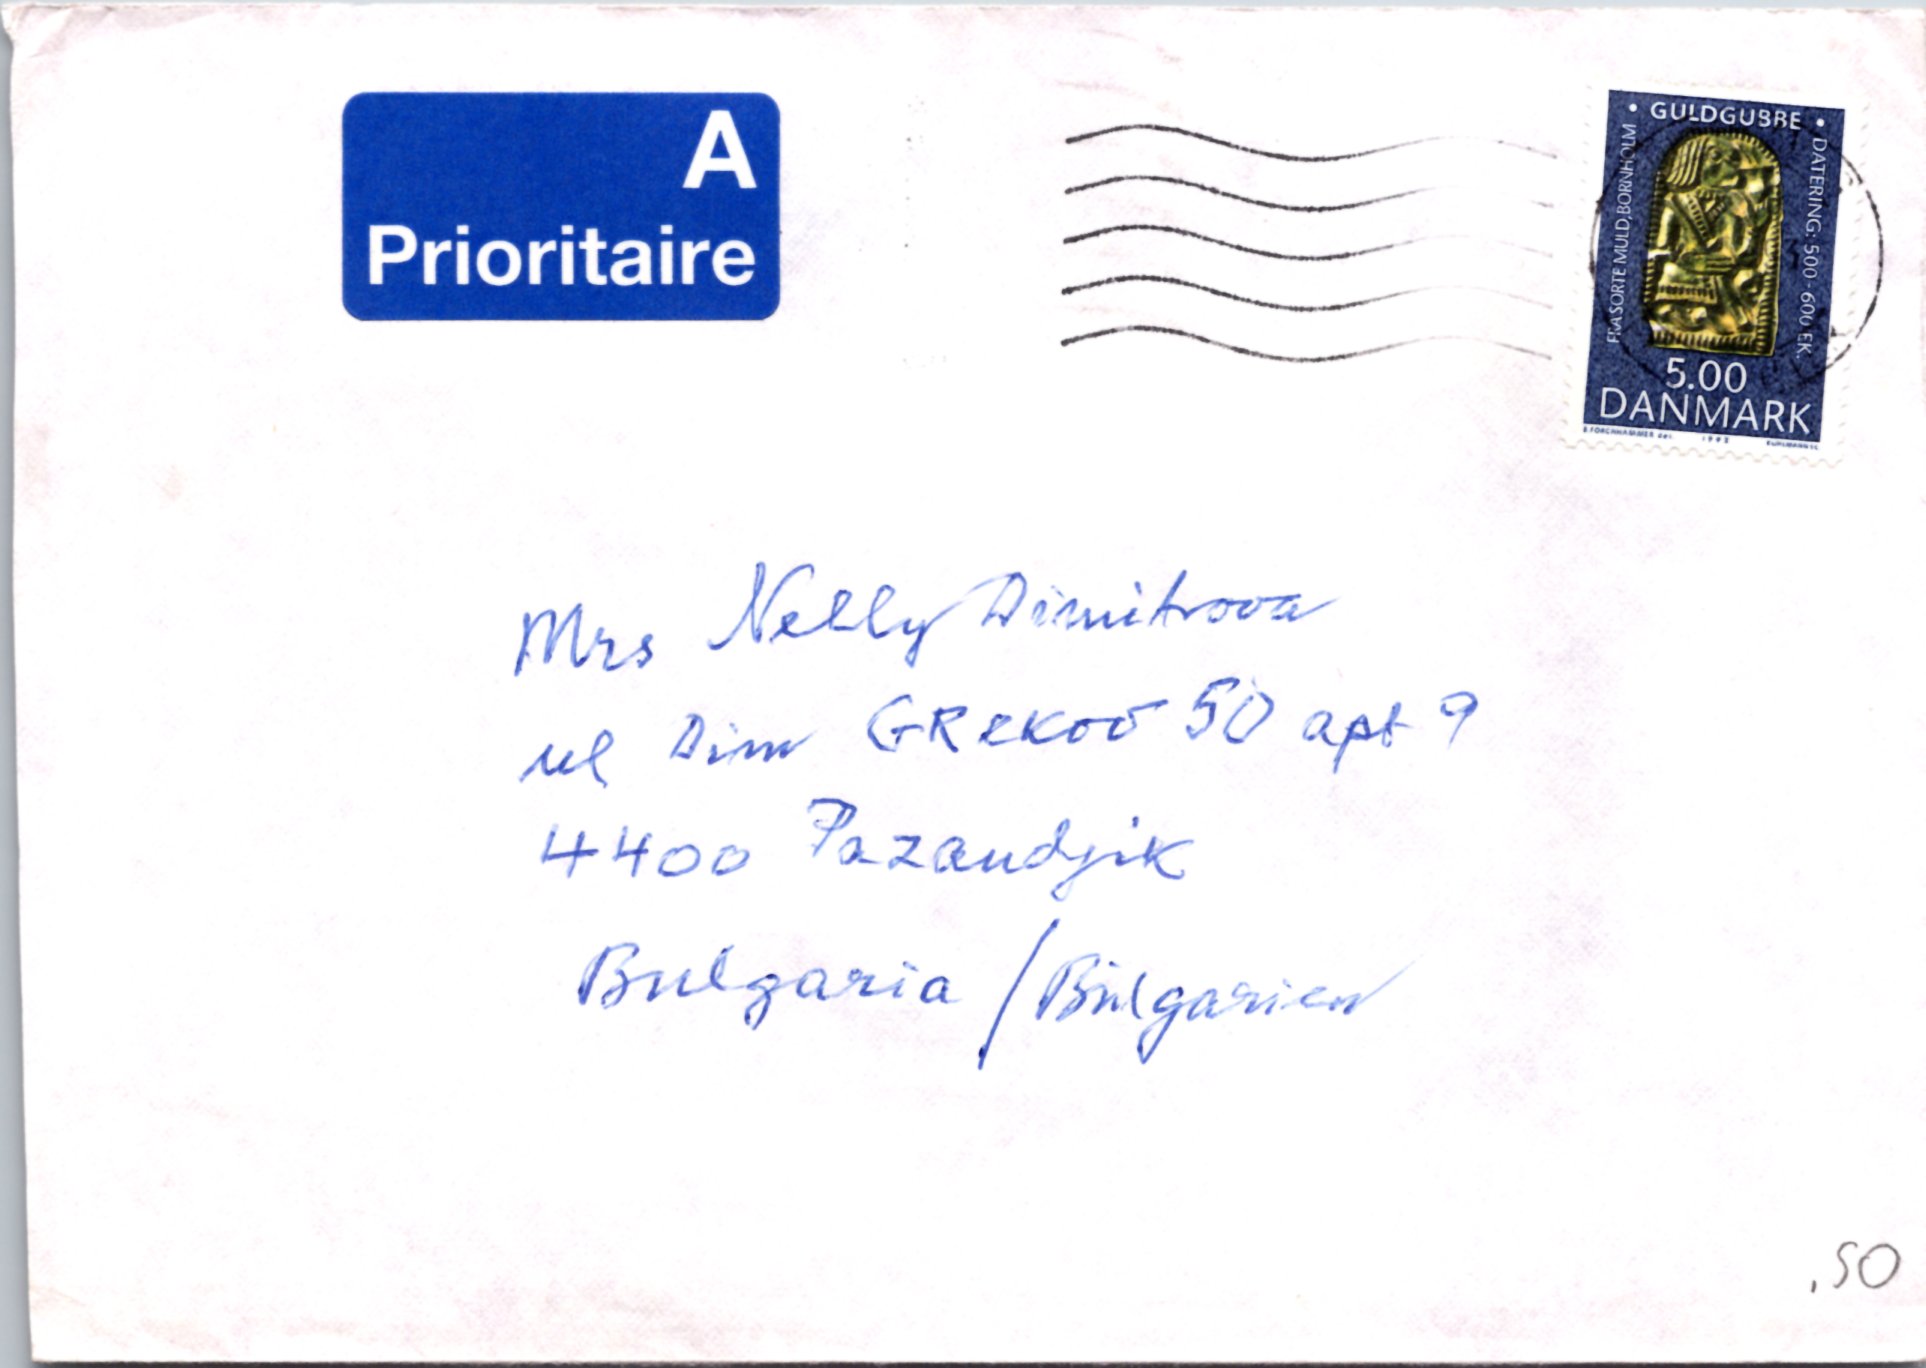 A
Prioritaire
• GULDGUBBE •
FRA SORTE MULD, BORNHOLM
DATERING: 500 - 600 E.K.
5.00
DANMARK
B FORCHHAMMER del. 1992 KUHLMANN SC
Mrs Nelly Dimitrova
ul Dim GREKOV 50 apt 9
4400 Pazandjik
Bulgaria / Bulgarien
.50